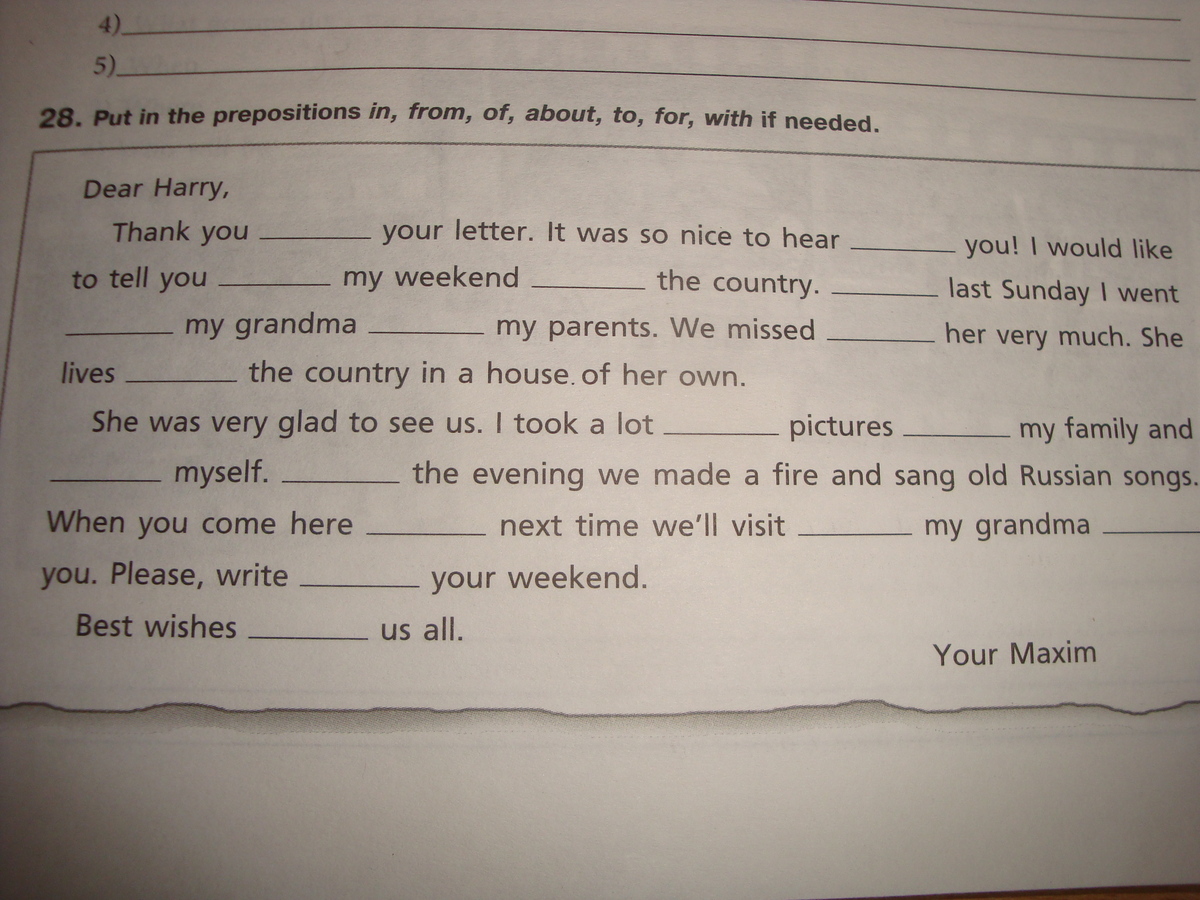 4)
5)
28. Put in the prepositions in, from, of, about, to, for, with if needed.
Dear Harry,
Thank you ________ your letter. It was so nice to hear ________ you! I would like
to tell you ________ my weekend ________ the country. ________ last Sunday I went
________ my grandma ________ my parents. We missed ________ her very much. She
lives ________ the country in a house of her own.
She was very glad to see us. I took a lot ________ pictures ________ my family and
________ myself. ________ the evening we made a fire and sang old Russian songs.
When you come here ________ next time we'll visit ________ my grandma ________
you. Please, write ________ your weekend.
Best wishes ________ us all.
Your Maxim